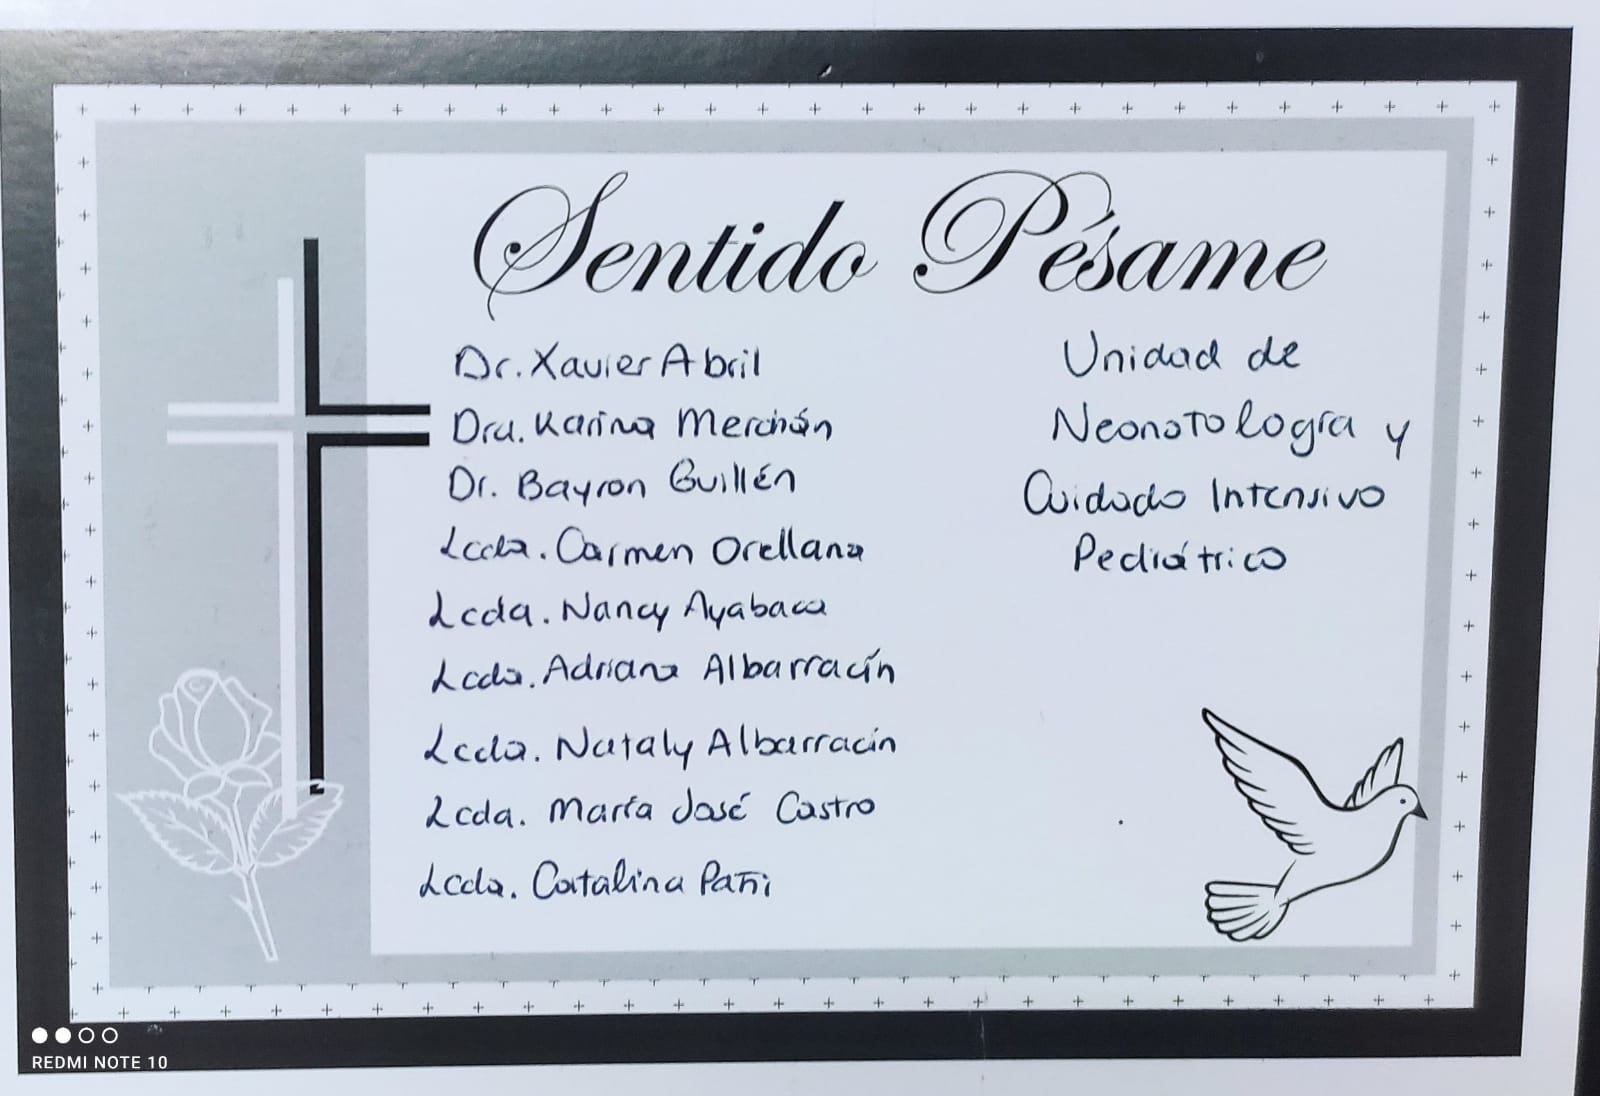 Sentido Pésame
Dr. Xavier Abril
Dra. Karina Merchán
Dr. Bayron Guillén
Lcda. Carmen Orellana
Lcda. Nancy Ayabaca
Lcda. Adriana Albarracín
Lcda. Nataly Albarracín
Lcda. María José Castro
Lcda. Catalina Pañi
Unidad de
Neonatología y
Cuidado Intensivo
Pediátrico
REDMI NOTE 10